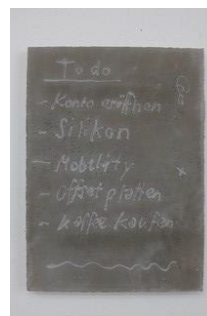 To do
- Konto eröffnen
- Silikon
- Mobility
- Offset platten
- Kaffee Kaufen